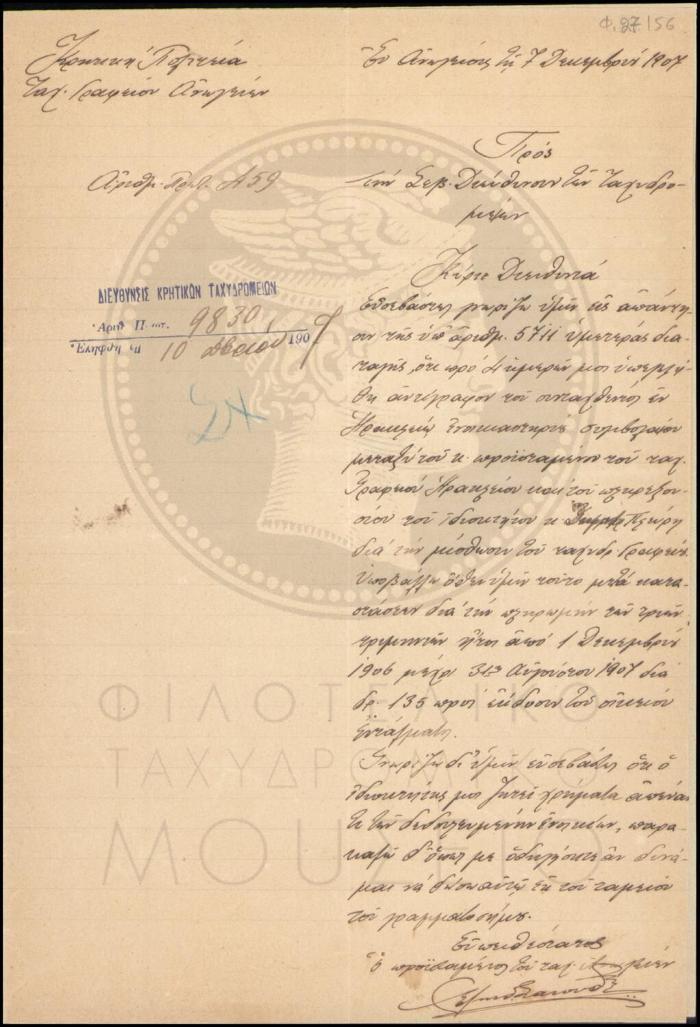 Φ. 27/56
Κρητική Πολιτεία
Ταχ. Γραφείον Ανωγείων
Εν Ανωγείοις τη 7 Δεκεμβρίου 1907
Αριθ. Πρωτ. Α59
Προς
την Σεβ. Διεύθυνσιν των Ταχυδρο-
μείων
ΔΙΕΥΘΥΝΣΙΣ ΚΡΗΤΙΚΩΝ ΤΑΧΥΔΡΟΜΕΙΩΝ
Ἀριθ. Πρωτ. 9830
Ἐλήφθη τῇ 10 Δβρίου 1907
Κύριε Διευθυντά
Ευσεβάστως γνωρίζω υμίν εις απάντη-
σιν της υπ' αριθμ. 5711 υμετέρας δια-
ταγής, ότι προ ημερών μοι υπεβλή-
θη αντίγραφον του συνταχθέντος εν
Ηρακλείω ενοικιαστηρίου συμβολαίου
μεταξύ του κ. προϊσταμένου του ταχ.
Γραφείου Ηρακλείου και του πληρεξου-
σίου του ιδιοκτήτου κ.
διά την μίσθωσιν του ταχυδρ. Γραφείου.
Υποβάλλω όθεν υμίν τούτο μετά κατα-
στάσεων διά την πληρωμήν των τριών
τριμηνιών ήτοι από 1 Δεκεμβρίου
1906 μέχρι 31ης Αυγούστου 1907 διά
δρ. 135 προς έκδοσιν του οικείου
Εντάλματος.
Γνωρίζω δε υμίν ευσεβάστως ότι ο
ιδιοκτήτης μοι ζητεί χρήματα απέναν-
τι των δεδουλευμένων ενοικίων, παρα-
καλώ δ' όπως με οδηγήσητε αν δύνα-
μαι να δώσω αυτώ εκ του ταμείου
του γραμματοσήμου.
Ευπειθέστατος
Ο προϊστάμενος του ταχ. Ανωγείων
ΦΙΛΟΤΕΛΙΚΟ
ΤΑΧΥΔΡΟΜΙΚΟ
ΜΟΥΣΕΙΟ